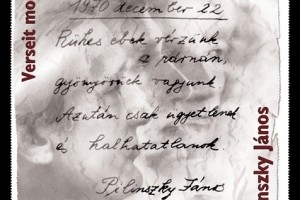 1970 december 22
Rühes ebek vérzünk
a rámán,
gyönyörűek vagyunk.
Azután csak ügyetlenek
és halhatatlanok.
Pilinszky János
Verseit mo
nszky János